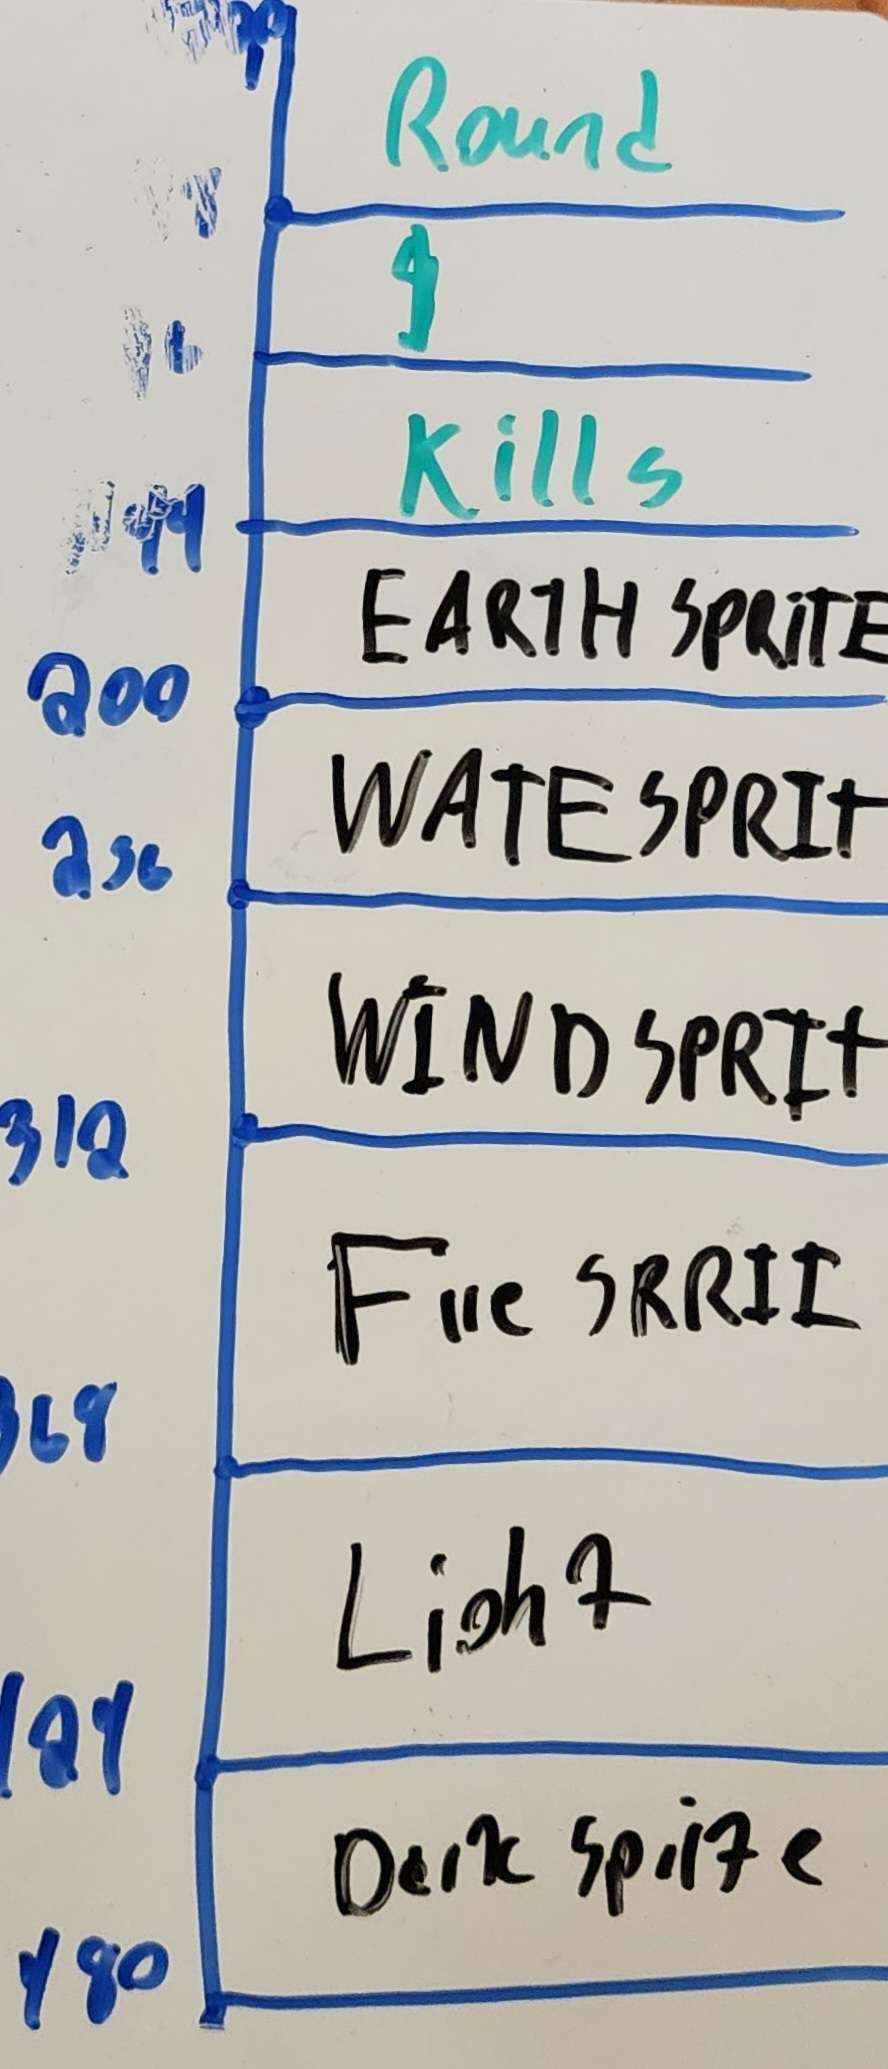 Round
$
Kills
144
EARTH SPRITE
200
WATESPRIt
256
WIND SPRIt
312
Fire SRRII
368
Light
424
Dark Sprite
480